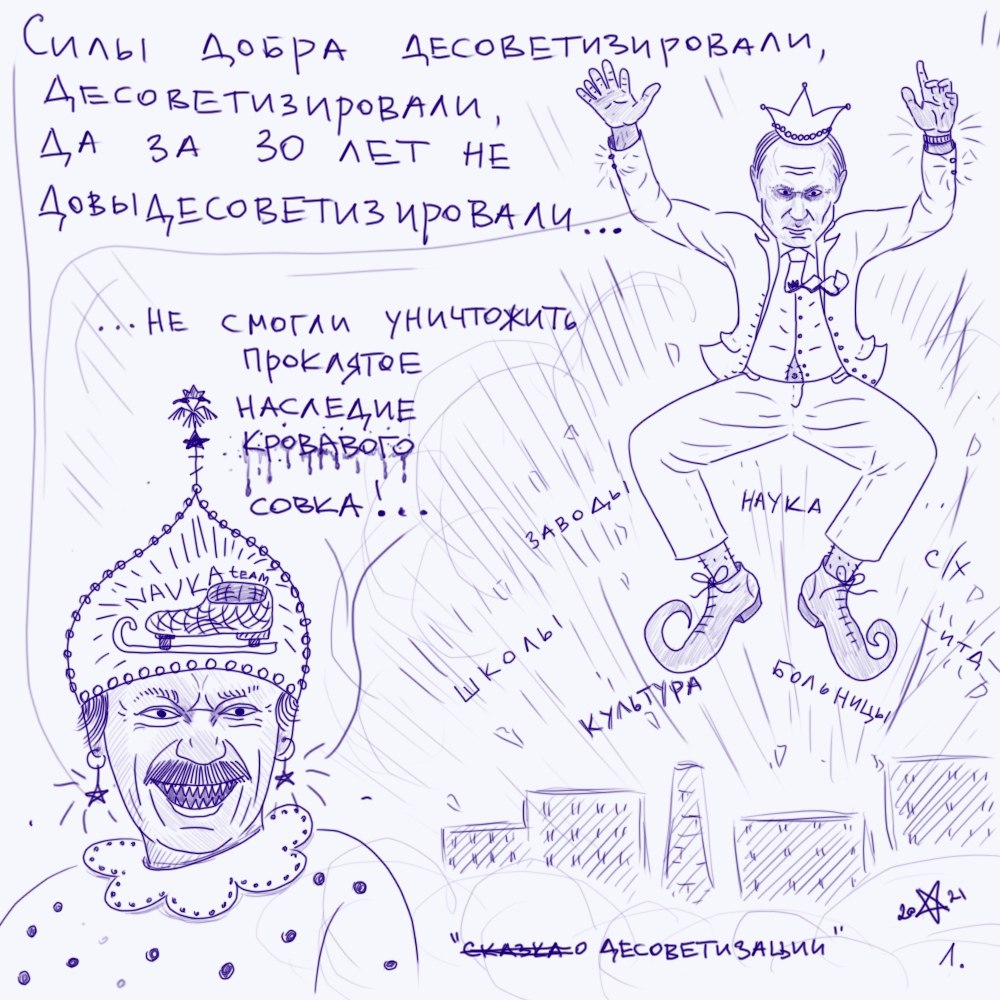 Силы добра десоветизировали,
десоветизировали,
да за 30 лет не
довыдесоветизировали...
...не смогли уничтожить
проклятое
наследие
кровавого
совка!...
NAVKA team
заводы
наука
с/х
школы
культура
больницы
2021
"сказка о десоветизации"
1.